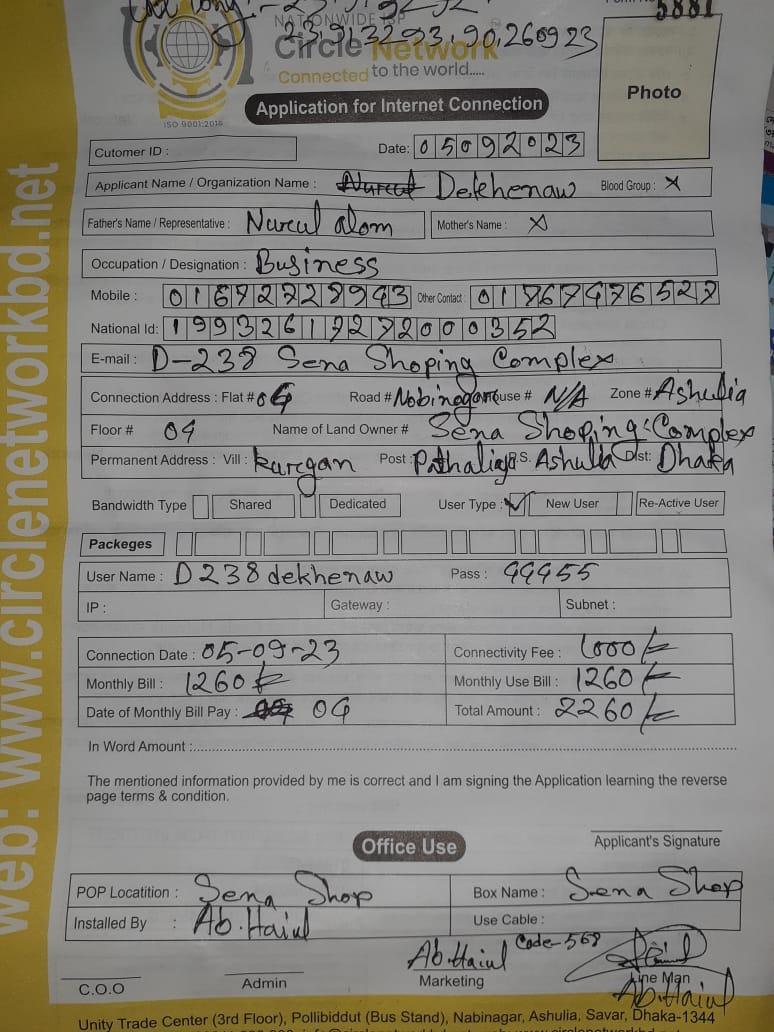 5881
NATIONWIDE ISP
23.9132 93.90,260923
Circle Network
Connected to the world.....
ISO 9001:2015
Application for Internet Connection
Photo
Cutomer ID :
Date: 05092023
Applicant Name / Organization Name : Dekhenaw Blood Group : X
Father's Name / Representative : Nurul alom Mother's Name : X
Occupation / Designation : Business
Mobile : Other Contact :
National Id:
E-mail : D-238 Sena Shoping Complex
Connection Address : Flat # 04 Road # House # N/A Zone # Ashulia
Floor # 04 Name of Land Owner # Sena Shoping Complex
Permanent Address : Vill : kurgan Post : Pathalia P.S. Ashulia Dist: Dhaka
Bandwidth Type Shared Dedicated User Type : ✓ New User Re-Active User
Packeges
User Name : D238dekhenaw Pass : 44455
IP : Gateway : Subnet :
Connection Date : 05-09-23 Connectivity Fee : 1000/=
Monthly Bill : 1260/= Monthly Use Bill : 1260/=
Date of Monthly Bill Pay : 04 Total Amount : 2260/=
In Word Amount :
The mentioned information provided by me is correct and I am signing the Application learning the reverse
page terms & condition.
Applicant's Signature
Office Use
POP Locatition : Sena Shop Box Name : Sena Shop
Installed By : Ab.Haiul Use Cable :
Ab.Haiul Code-568
C.O.O Admin Marketing Line Man
Ab.Haiul
Unity Trade Center (3rd Floor), Pollibiddut (Bus Stand), Nabinagar, Ashulia, Savar, Dhaka-1344
web: www.circlenetworkbd.net